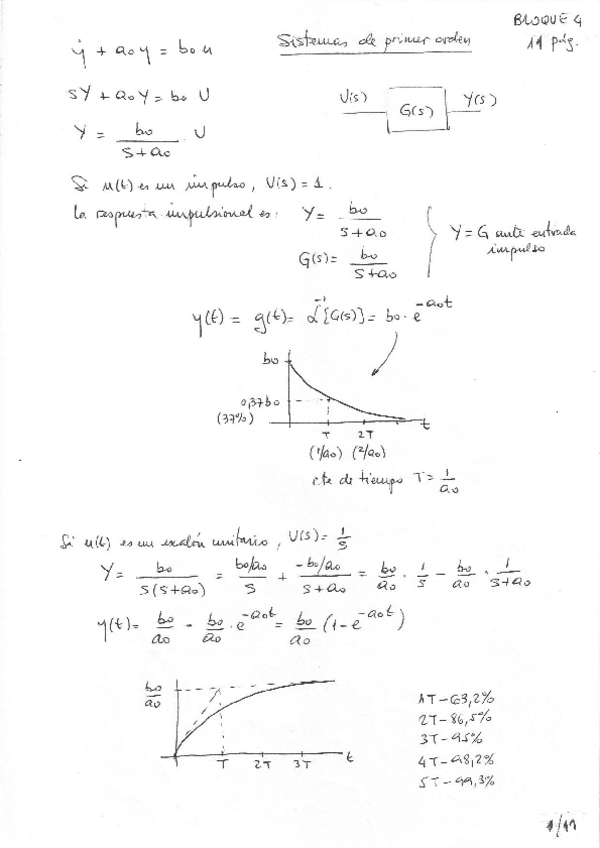 BLOQUE 4
Sistemas de primer orden
11 pág.
ẏ + a₀y = b₀u
sY + a₀Y = b₀ U
U(s) G(s) Y(s)
Y = b₀/(s+a₀) U
Si u(t) es un impulso, U(s) = 1.
La respuesta impulsional es: Y = b₀/(s+a₀)
G(s) = b₀/(s+a₀)
Y = G ante entrada
impulso
y(t) = g(t) = ℒ⁻¹{G(s)} = b₀·e^(-a₀t)
b₀
0,37b₀
(37%)
T 2T t
(1/a₀) (2/a₀)
cte de tiempo T = 1/a₀
Si u(t) es un escalón unitario, U(s) = 1/s
Y = b₀/(s(s+a₀)) = (b₀/a₀)/s + (-b₀/a₀)/(s+a₀) = b₀/a₀ · 1/s - b₀/a₀ · 1/(s+a₀)
y(t) = b₀/a₀ - b₀/a₀ · e^(-a₀t) = b₀/a₀ (1-e^(-a₀t))
b₀/a₀
T 2T 3T t
1T-63,2%
2T-86,5%
3T-95%
4T-98,2%
5T-99,3%
1/11